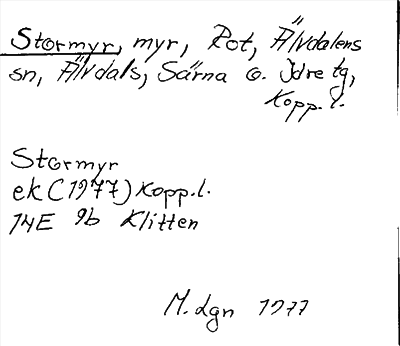 Stormyr, myr, Rot, Älvdalens
sn, Älvdals, Särna o. Idre tg,
Kopp. l.
Stormyr
ek (1977) Kopp. l.
14E 9b Klitten
M. Lgn 1977